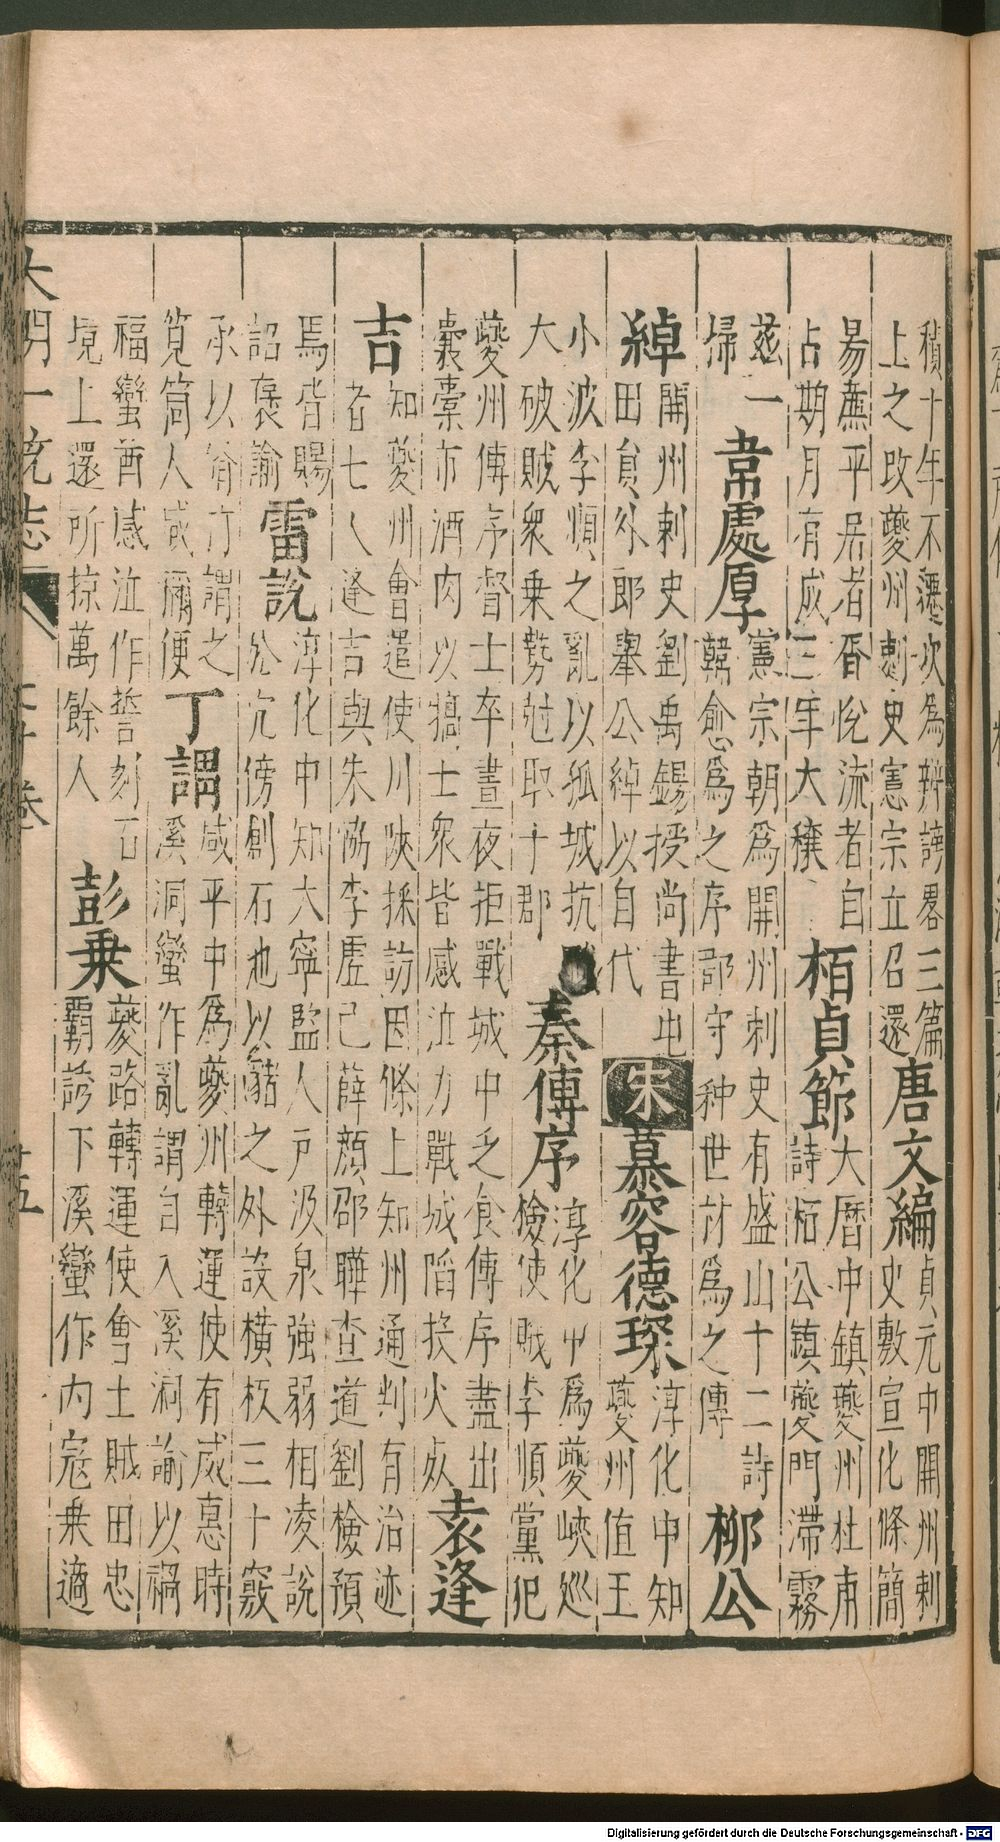 積十年不遷次為辨謗畧三篇
上之改夔州刺史憲宗立召還
唐文編
貞元中開州刺
史敷宣化條簡
易薦平居者胥悅流者自
占期月有成三年大穰
栢貞節
大曆中鎮夔州杜甫
詩栢公鎮夔門滯霧
茲一
掃
韋處厚
憲宗朝為開州刺史有盛山十二詩
韓愈為之序郡守种世材為之傳
柳公
綽
開州刺史劉禹錫授尚書屯
田員外郎舉公綽以自代
宋
慕容德琛
淳化中知
夔州值王
小波李順之亂以孤城抗
大破賊衆乗勢尅取十郡
秦傳序
淳化中為夔峽巡
檢使賊李順黨犯
夔州傳序督士卒晝夜拒戰城中乏食傳序盡出
囊橐市酒肉以犒士衆皆感泣力戰城陷投火死
袁逢
吉
知夔州會遣使川陝採訪因條上知州通判有治迹
者七人逢吉與朱協李虛己薛顏邵曄查道劉檢預
焉皆賜
詔褒諭
雷說
淳化中知大寧監人戶汲泉強弱相凌說
於穴傍創石池以豬之外設橫板三十竅
承以脩竹謂之
筧筒人咸爾便
丁謂
咸平中為夔州轉運使有威惠時
溪洞蠻作亂謂自入溪洞諭以禍
福蠻酋感泣作誓刻石
境上還所掠萬餘人
彭乗
夔路轉運使會土賊田忠
霸誘下溪蠻作內寇乗適
大明一統志
卷
十五
Digitalisierung gefördert durch die Deutsche Forschungsgemeinschaft - DFG